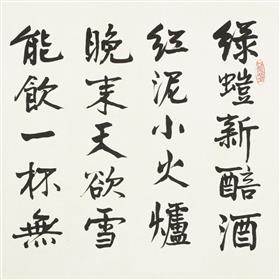 綠螘新醅酒
紅泥小火爐
晚来天欲雪
能飲一杯無